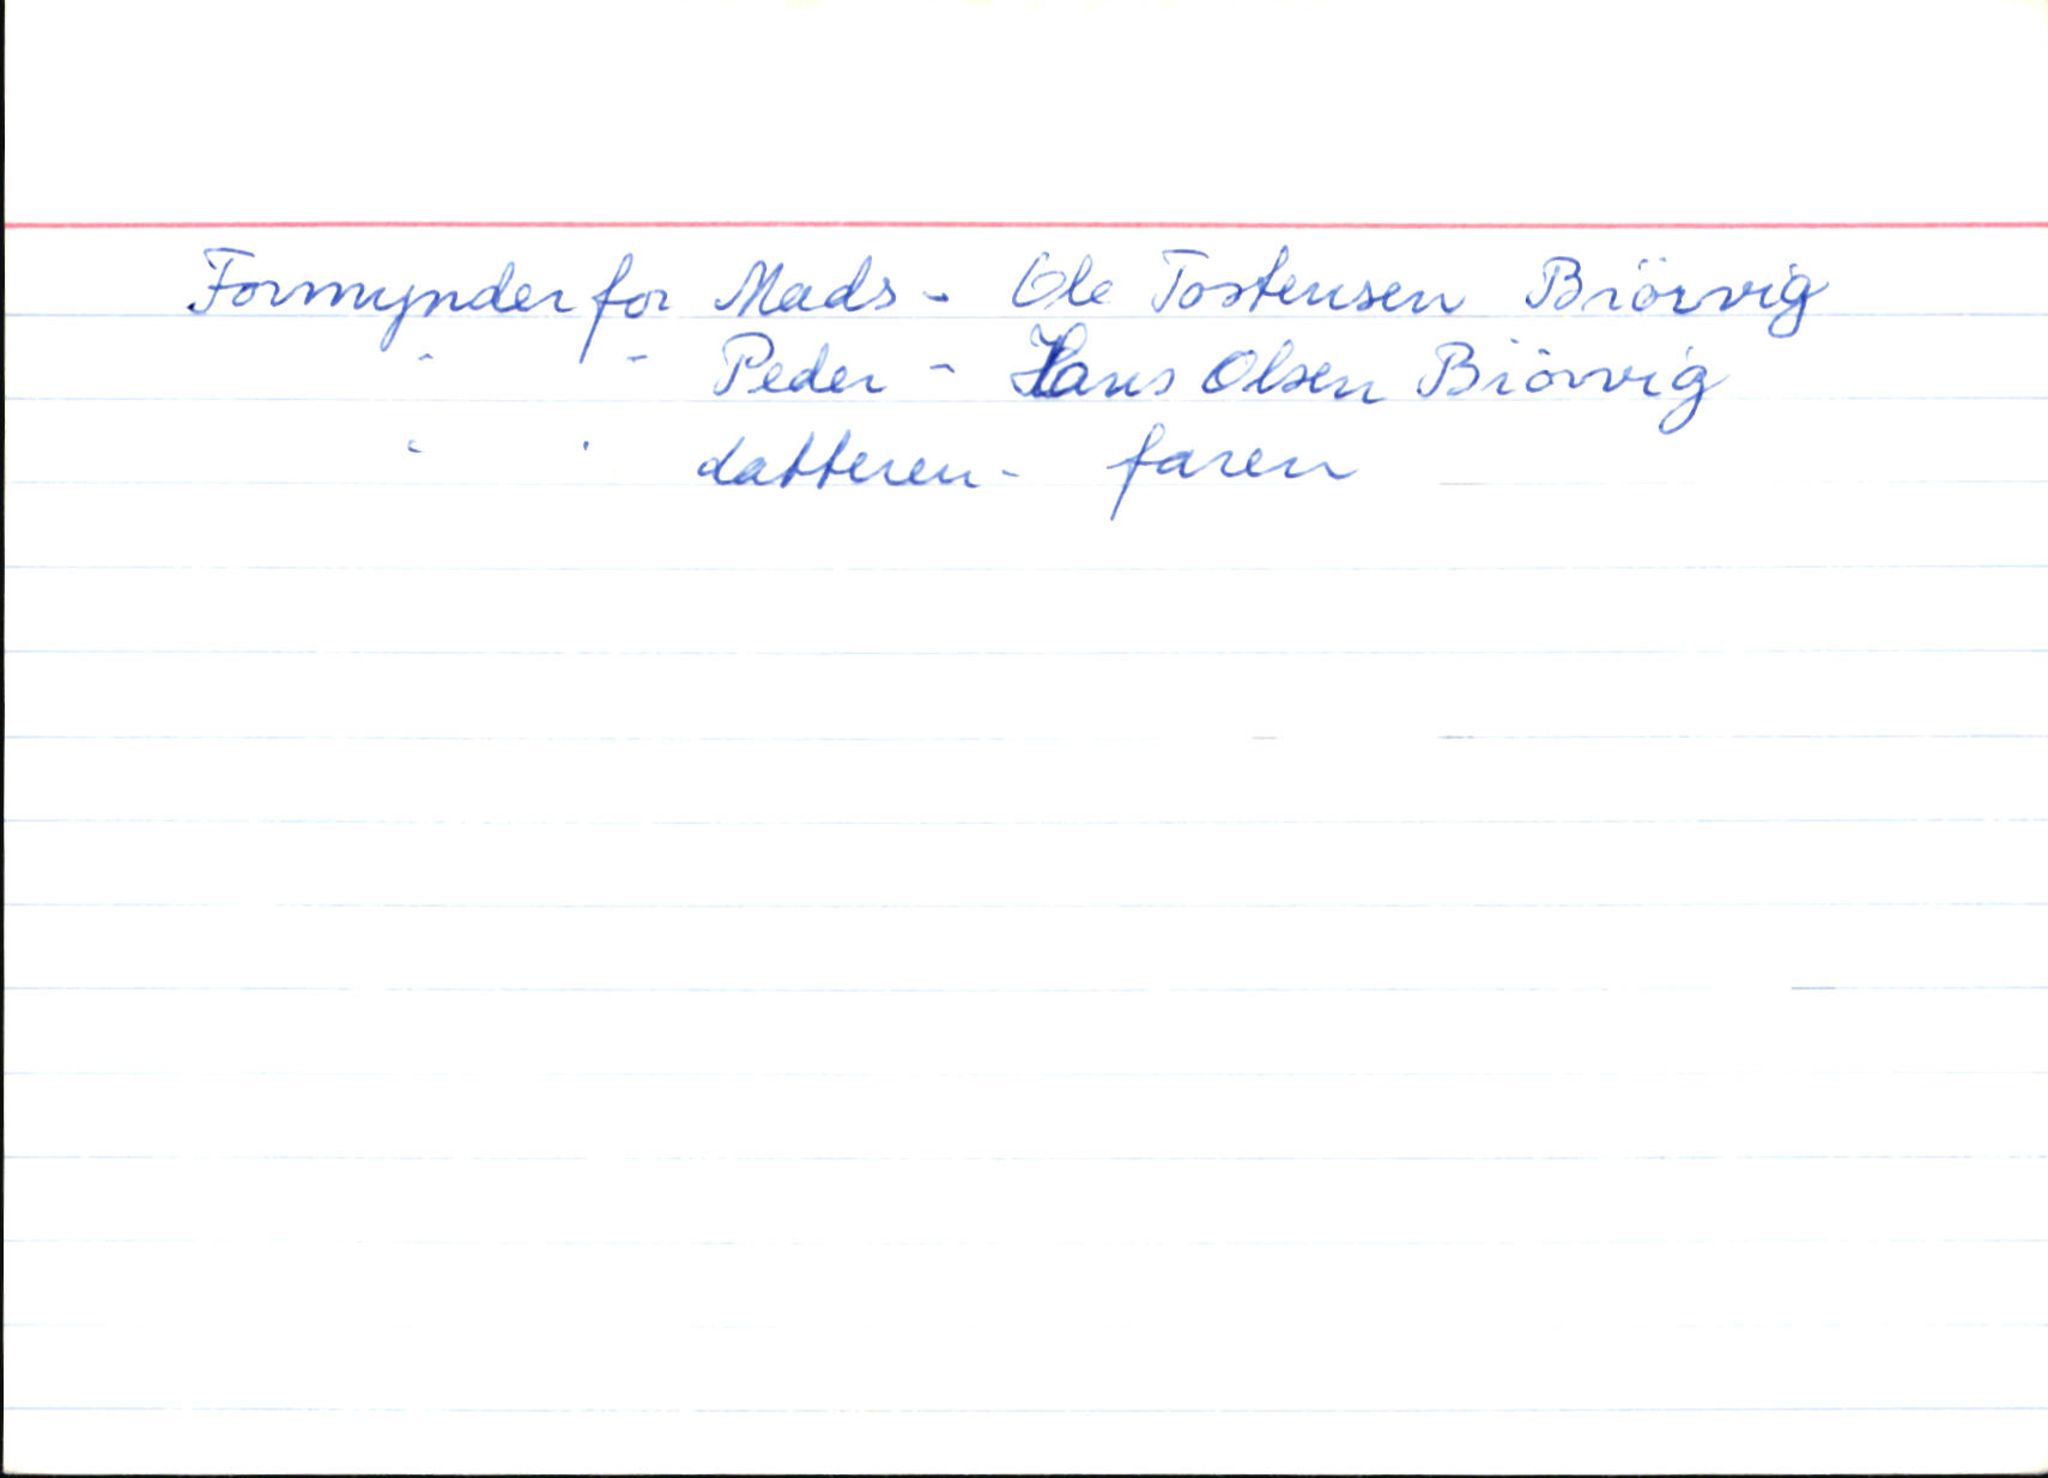 Formynder for Mads - Ole Tostensen Biörvig
- - Peder - Hans Olsen Biörvig
- - datteren - faren